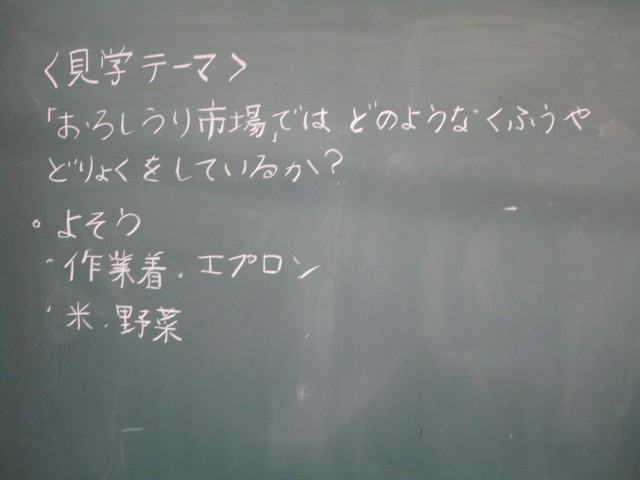 〈見学テーマ〉
「おろしうり市場」では どのようなくふうや
どりょくをしているか?
・よそう
・作業着・エプロン
・米・野菜